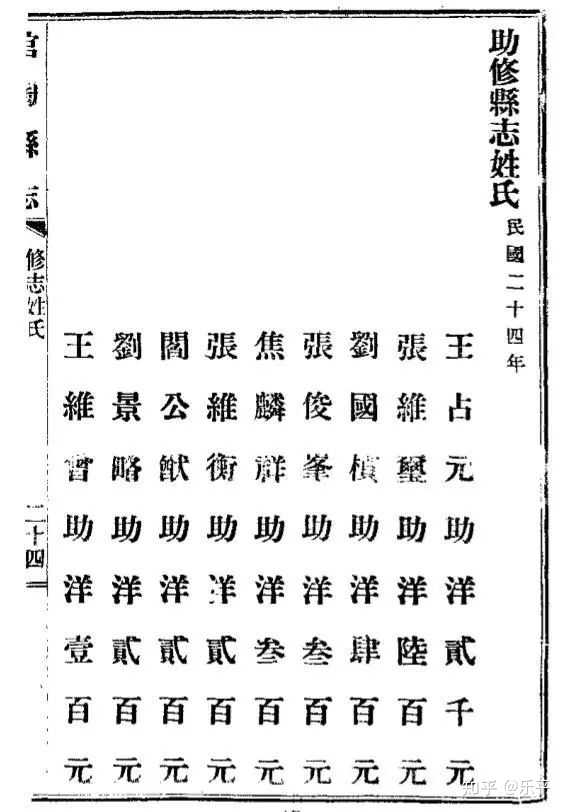 助修縣志姓氏 民國二十四年
王占元助洋貳千元
張維璽助洋陸百元
劉國楨助洋肆百元
張俊峯助洋叁百元
焦麟群助洋叁百元
張維衡助洋貳百元
閻公猷助洋貳百元
劉景略助洋貳百元
王維曾助洋壹百元
縣志
修志姓氏
二十四
知乎 @乐平